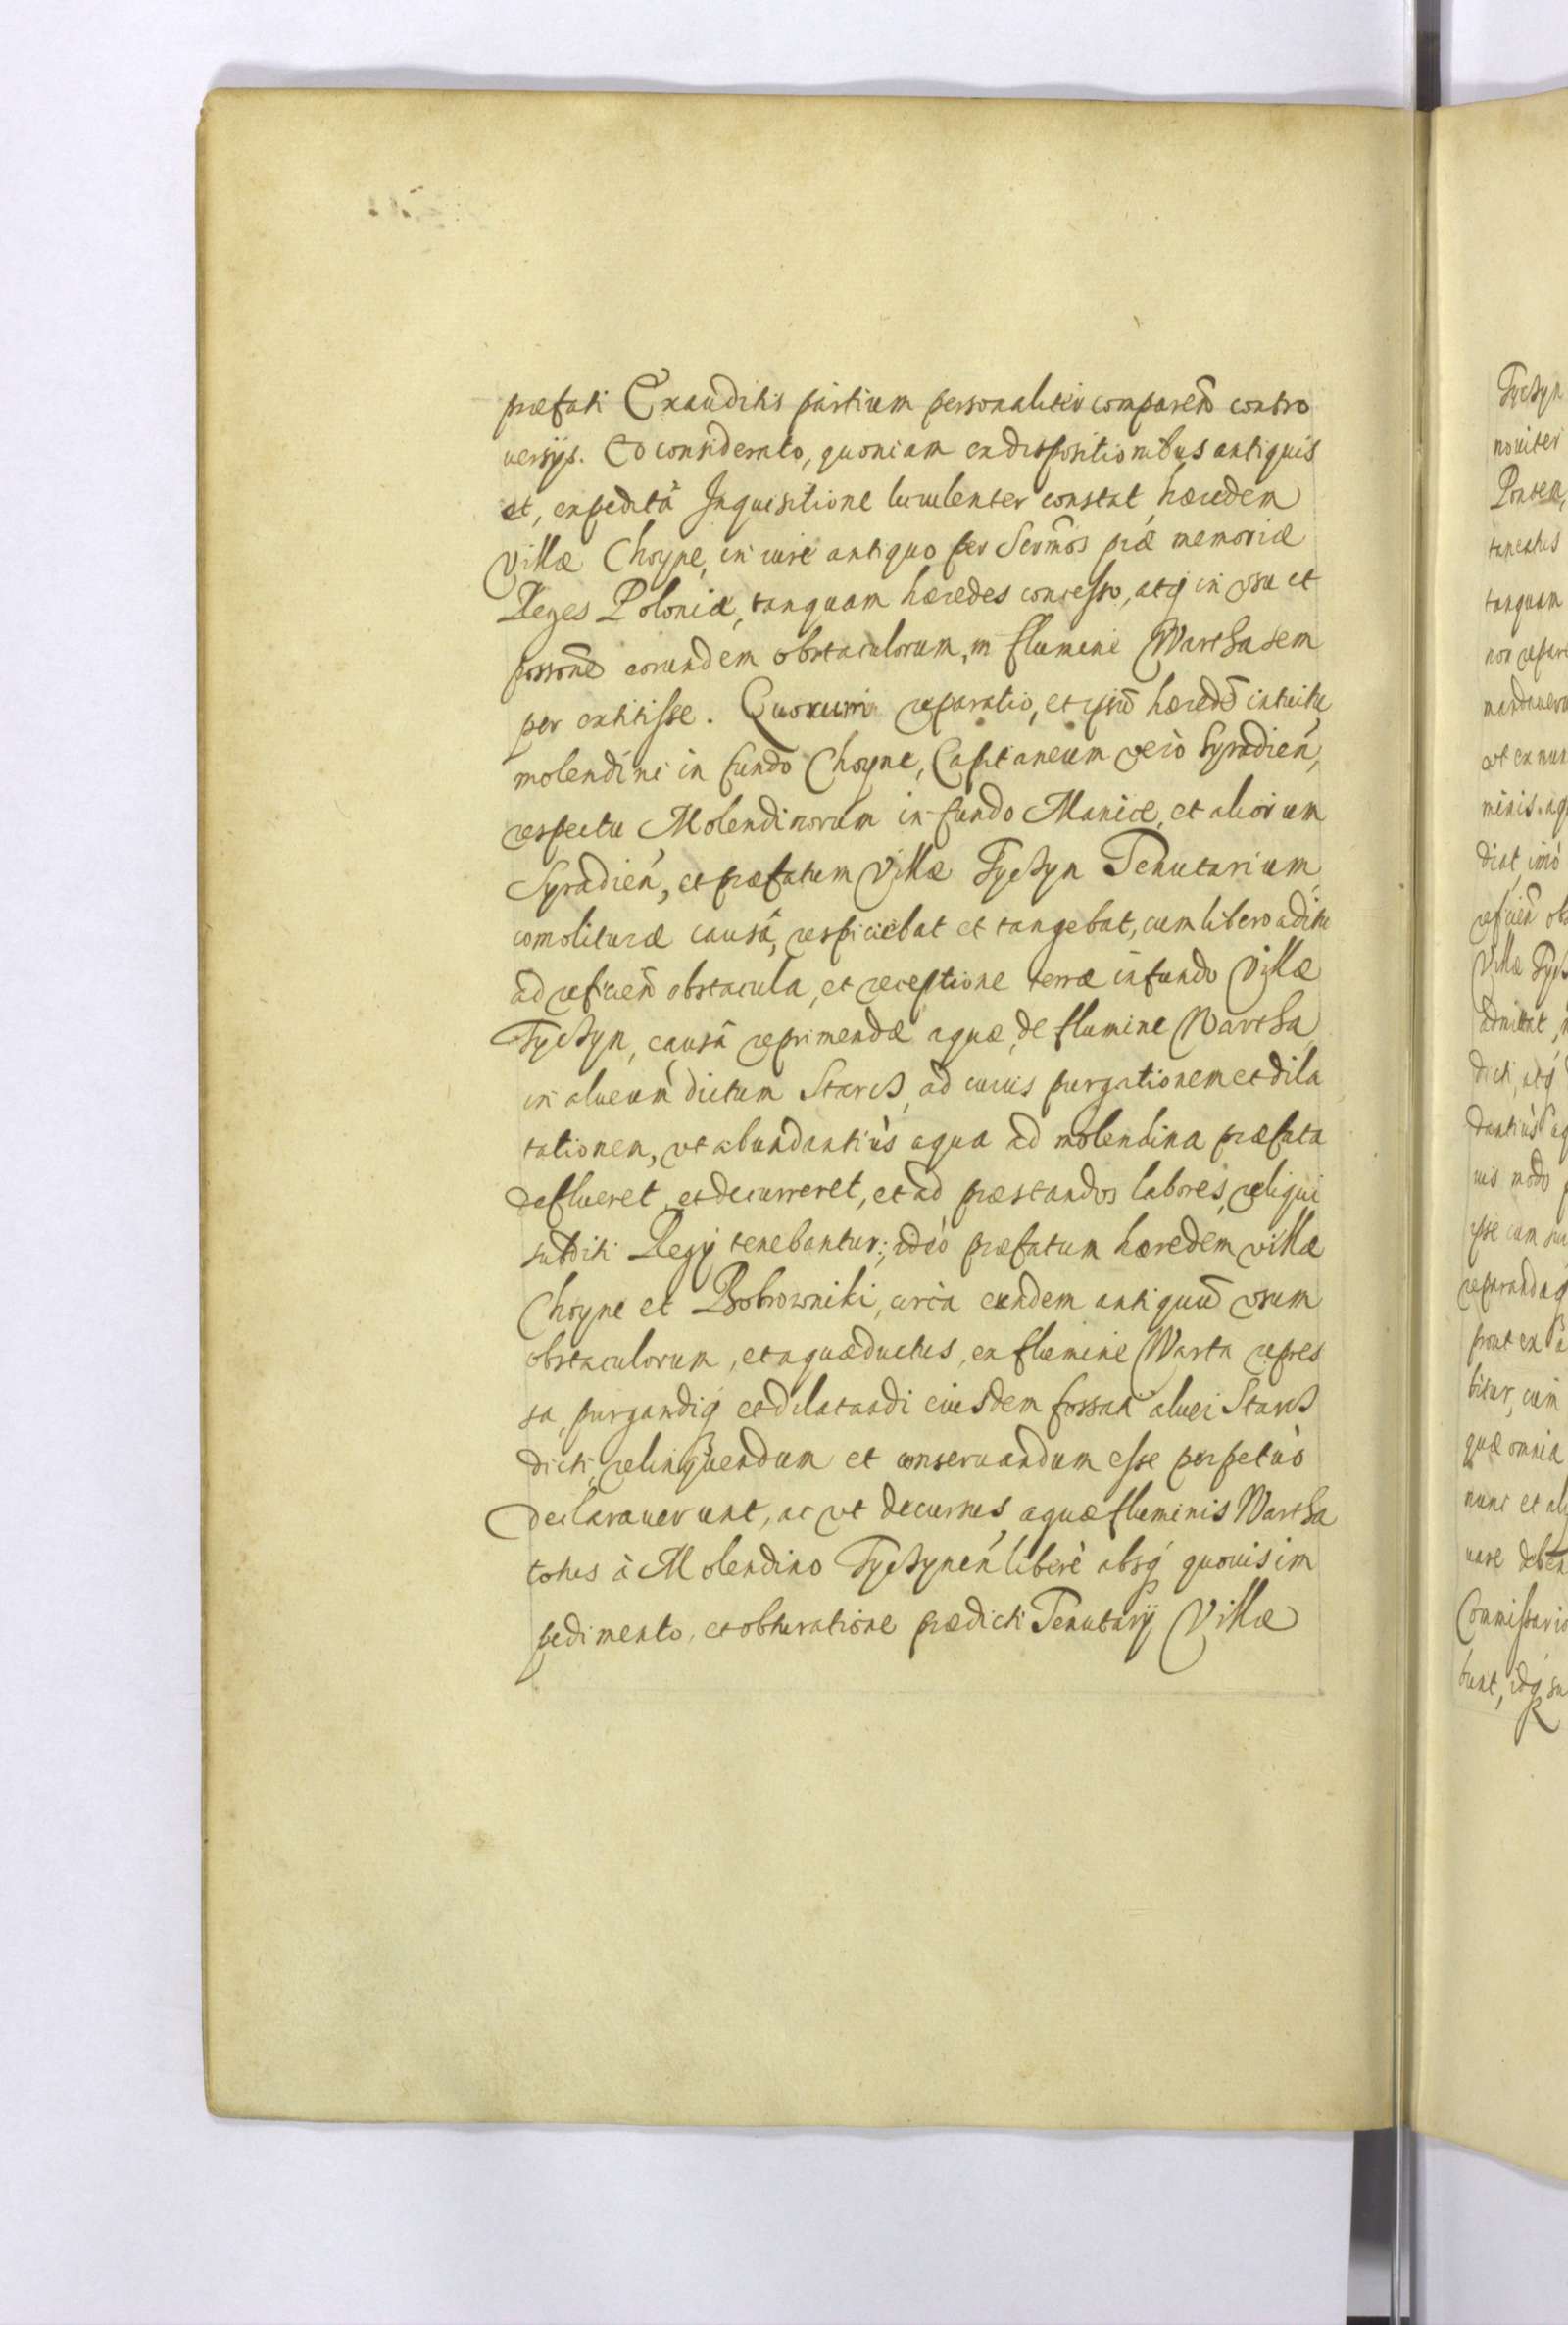 præfati Exauditis partium personaliter comparen̄ contro
uersijs. Eo considerato, quoniam ex dispositionibus antiquis
et, expeditâ Inquisitione luculenter constat hæredem
Villæ Choyne, in iure antiquo per Serm̄os piæ memoriæ
Reges Poloniæ, tanquam hæredes concesso, atq́ in vsu et
possōne eorundem obstaculorum, in flumine Wartha sem
per extitisse. Quorum reparatio, et ipsū hæredē intuitu
molendini in fundo Choyne, Capitaneum verò Syradień,
respectu Molendinorum in fundo Manice, et aliorum
Syradień, et præfatum Villæ Tychyn Tenutarium
comolituræ causâ, respiciebat et tangebat, cum libero aditu
ad reficien̄ obstacula, et receptione terræ in fundo Villæ
Tychyn, causâ reprimendæ aquæ, de flumine Wartha
in alueum dictum Starch, ad cuius purgationem et dila
tationem, vt abundantiùs aqua ad molendina præfata
deflueret, et decurreret, et ad præstandos labores, reliqui
subditi Regij tenebantur; ideò præfatum hæredem villæ
Choyne et Bobrowniki, circa eundem antiquū vsum
obstaculorum, et aquæductus, ex flumine Warta repres
sa, purgandiq́ et dilatandi eiusdem fossati aluei Starch
dicti, relinquendum et conseruandum esse perpetuò
declarauerunt, ac vt decursus aquæ fluminis Wartha
toties à Molendino Tychyneń liberè absq́ quouis im
pedimento, et obturatione prædicti Tenutarij Villæ
Tychyn
nouiter
tanquam